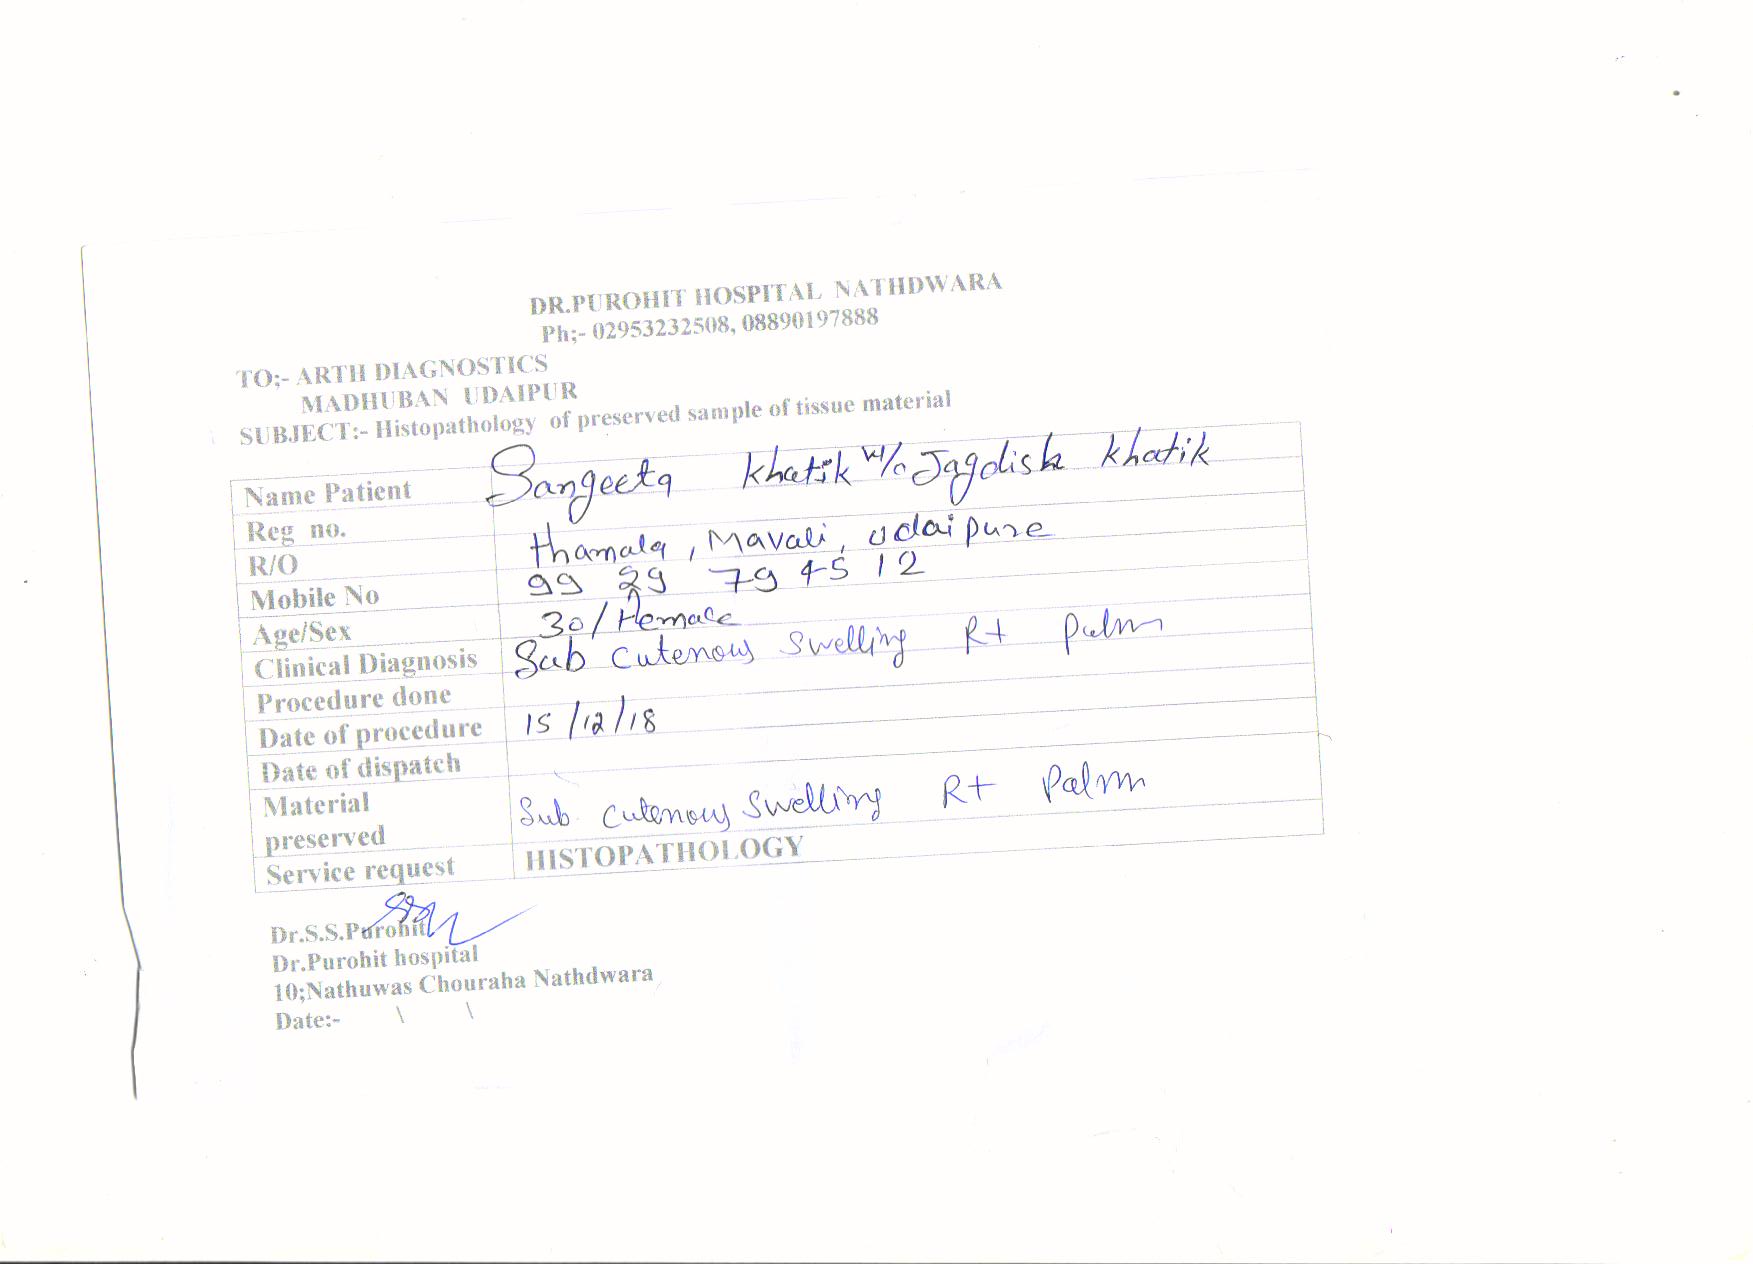 DR.PUROHIT HOSPITAL NATHDWARA
Ph;- 02953232508, 08890197888
TO:- ARTH DIAGNOSTICS
MADHUBAN UDAIPUR
SUBJECT:- Histopathology of preserved sample of tissue material
Name Patient Sangeeta Khatik W/o Jagdish Khatik
Reg no.
R/O thamala, Mavali, Udaipure
Mobile No 99 29 79 45 12
Age/Sex 30/Female
Clinical Diagnosis Sub Cutenous Swelling Rt Palm
Procedure done
Date of procedure 15/12/18
Date of dispatch
Material
preserved Sub Cutenous Swelling Rt Palm
Service request HISTOPATHOLOGY
Dr.S.S.Purohit
Dr.Purohit hospital
10;Nathuwas Chouraha Nathdwara
Date:- \ \